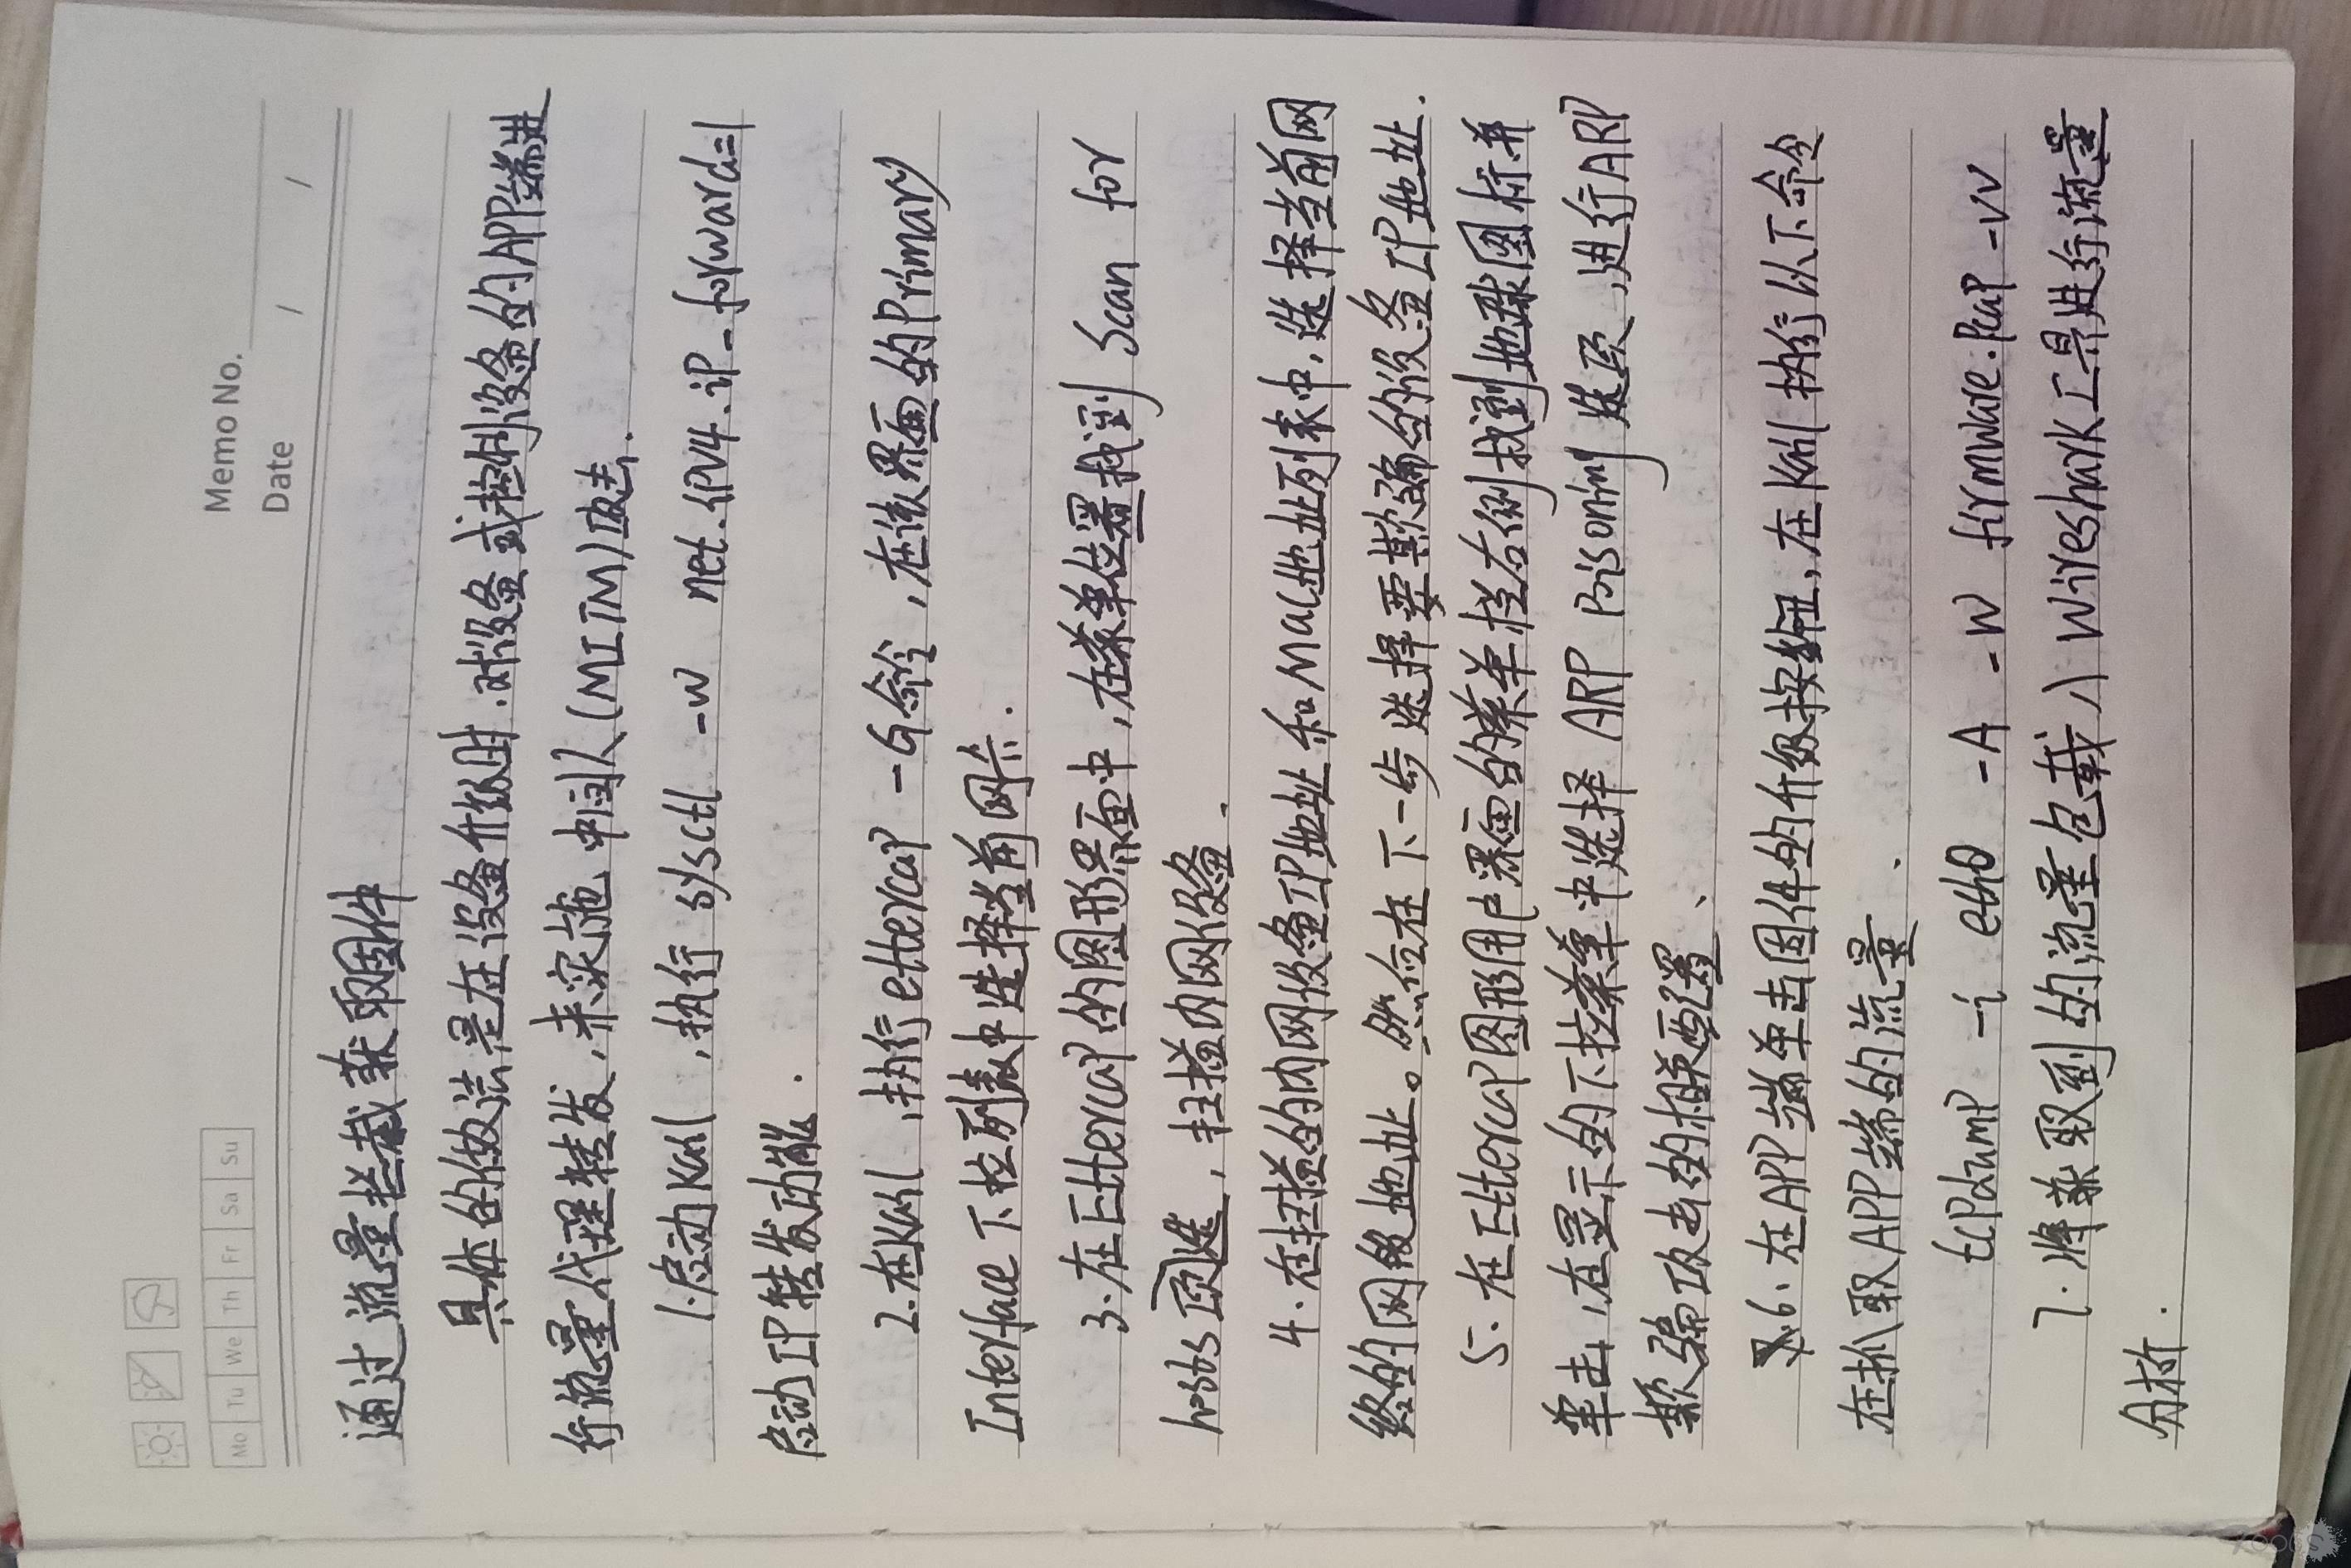 Memo No.
Mo Tu We Th Fr Sa Su
Date / /
通过流量拦截获取固件
具体的做法是在设备升级时.对设备或控制设备的APP端进
行流量代理转发,来实施中间人(MITM)攻击.
1.启动Kali,执行 sysctl -w net.ipv4.ip_forward=1
启动IP转发功能.
2.在Kali,执行ettercap -G命令,在该界面的Primary
Interface下拉列表中选择当前网卡.
3.在Ettercap的图形界面中,在菜单位置找到 Scan for
hosts项选,扫描内网设备.
4.在扫描的内网设备IP地址和Mac地址列表中,选择当前网
络的网段地址。然后在下一步选择要欺骗的设备IP地址.
5.在Ettercap图形用户界面的菜单栏右侧找到地球图标并
单击,在显示的下拉菜单中选择 ARP Poisoning 选项,进行ARP
欺骗攻击的相关配置、
6.在APP端单击固件的升级按钮,在Kali执行以下命令
在抓取APP端的流量、
tcpdump -i eth0 -A -w firmware.pcap -vv
7.将获取到的流量包载入Wireshark工具进行流量
分析.